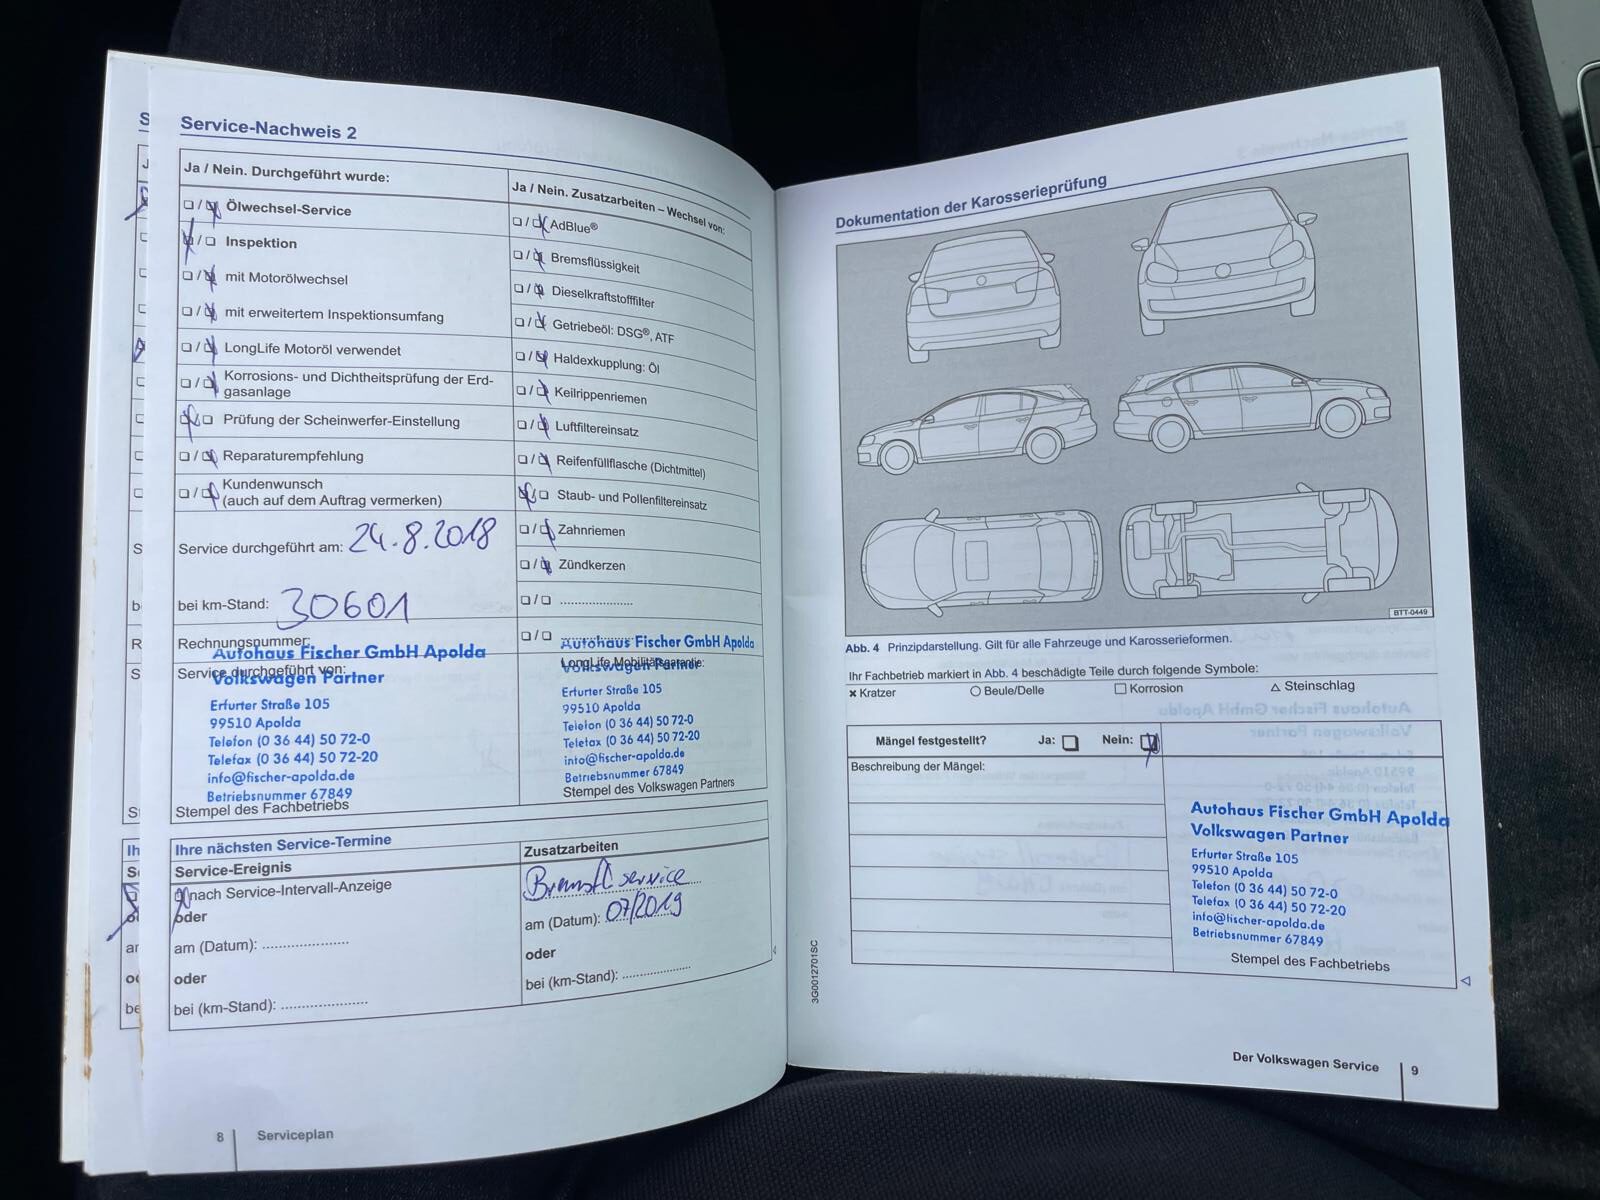 Service-Nachweis 2
Ja / Nein. Durchgeführt wurde:
Ölwechsel-Service
Inspektion
mit Motorölwechsel
mit erweitertem Inspektionsumfang
LongLife Motoröl verwendet
Korrosions- und Dichtheitsprüfung der Erd-
gasanlage
Prüfung der Scheinwerfer-Einstellung
Reparaturempfehlung
Kundenwunsch
(auch auf dem Auftrag vermerken)
Service durchgeführt am: 24.8.2018
bei km-Stand: 30601
Rechnungsnummer:
Autohaus Fischer GmbH Apolda
Service durchgeführt von:
Volkswagen Partner
Erfurter Straße 105
99510 Apolda
Telefon (0 36 44) 50 72-0
Telefax (0 36 44) 50 72-20
info@fischer-apolda.de
Betriebsnummer 67849
Stempel des Fachbetriebs
Ja / Nein. Zusatzarbeiten – Wechsel von:
AdBlue®
Bremsflüssigkeit
Dieselkraftstofffilter
Getriebeöl: DSG®, ATF
Haldexkupplung: Öl
Keilrippenriemen
Luftfiltereinsatz
Reifenfüllflasche (Dichtmittel)
Staub- und Pollenfiltereinsatz
Zahnriemen
Zündkerzen
Autohaus Fischer GmbH Apolda
LongLife Mobilitätsgarantie:
Volkswagen Partner
Erfurter Straße 105
99510 Apolda
Telefon (0 36 44) 50 72-0
Telefax (0 36 44) 50 72-20
info@fischer-apolda.de
Betriebsnummer 67849
Stempel des Volkswagen Partners
Ihre nächsten Service-Termine
Service-Ereignis
nach Service-Intervall-Anzeige
oder
am (Datum):
oder
bei (km-Stand):
Zusatzarbeiten
Bremsfl service
am (Datum): 07/2019
oder
bei (km-Stand):
8 Serviceplan
Dokumentation der Karosserieprüfung
BTT-0449
Abb. 4 Prinzipdarstellung. Gilt für alle Fahrzeuge und Karosserieformen.
Ihr Fachbetrieb markiert in Abb. 4 beschädigte Teile durch folgende Symbole:
Kratzer Beule/Delle Korrosion Steinschlag
Mängel festgestellt? Ja: Nein:
Beschreibung der Mängel:
Autohaus Fischer GmbH Apolda
Volkswagen Partner
Erfurter Straße 105
99510 Apolda
Telefon (0 36 44) 50 72-0
Telefax (0 36 44) 50 72-20
info@fischer-apolda.de
Betriebsnummer 67849
Stempel des Fachbetriebs
3G0012701SC
Der Volkswagen Service 9